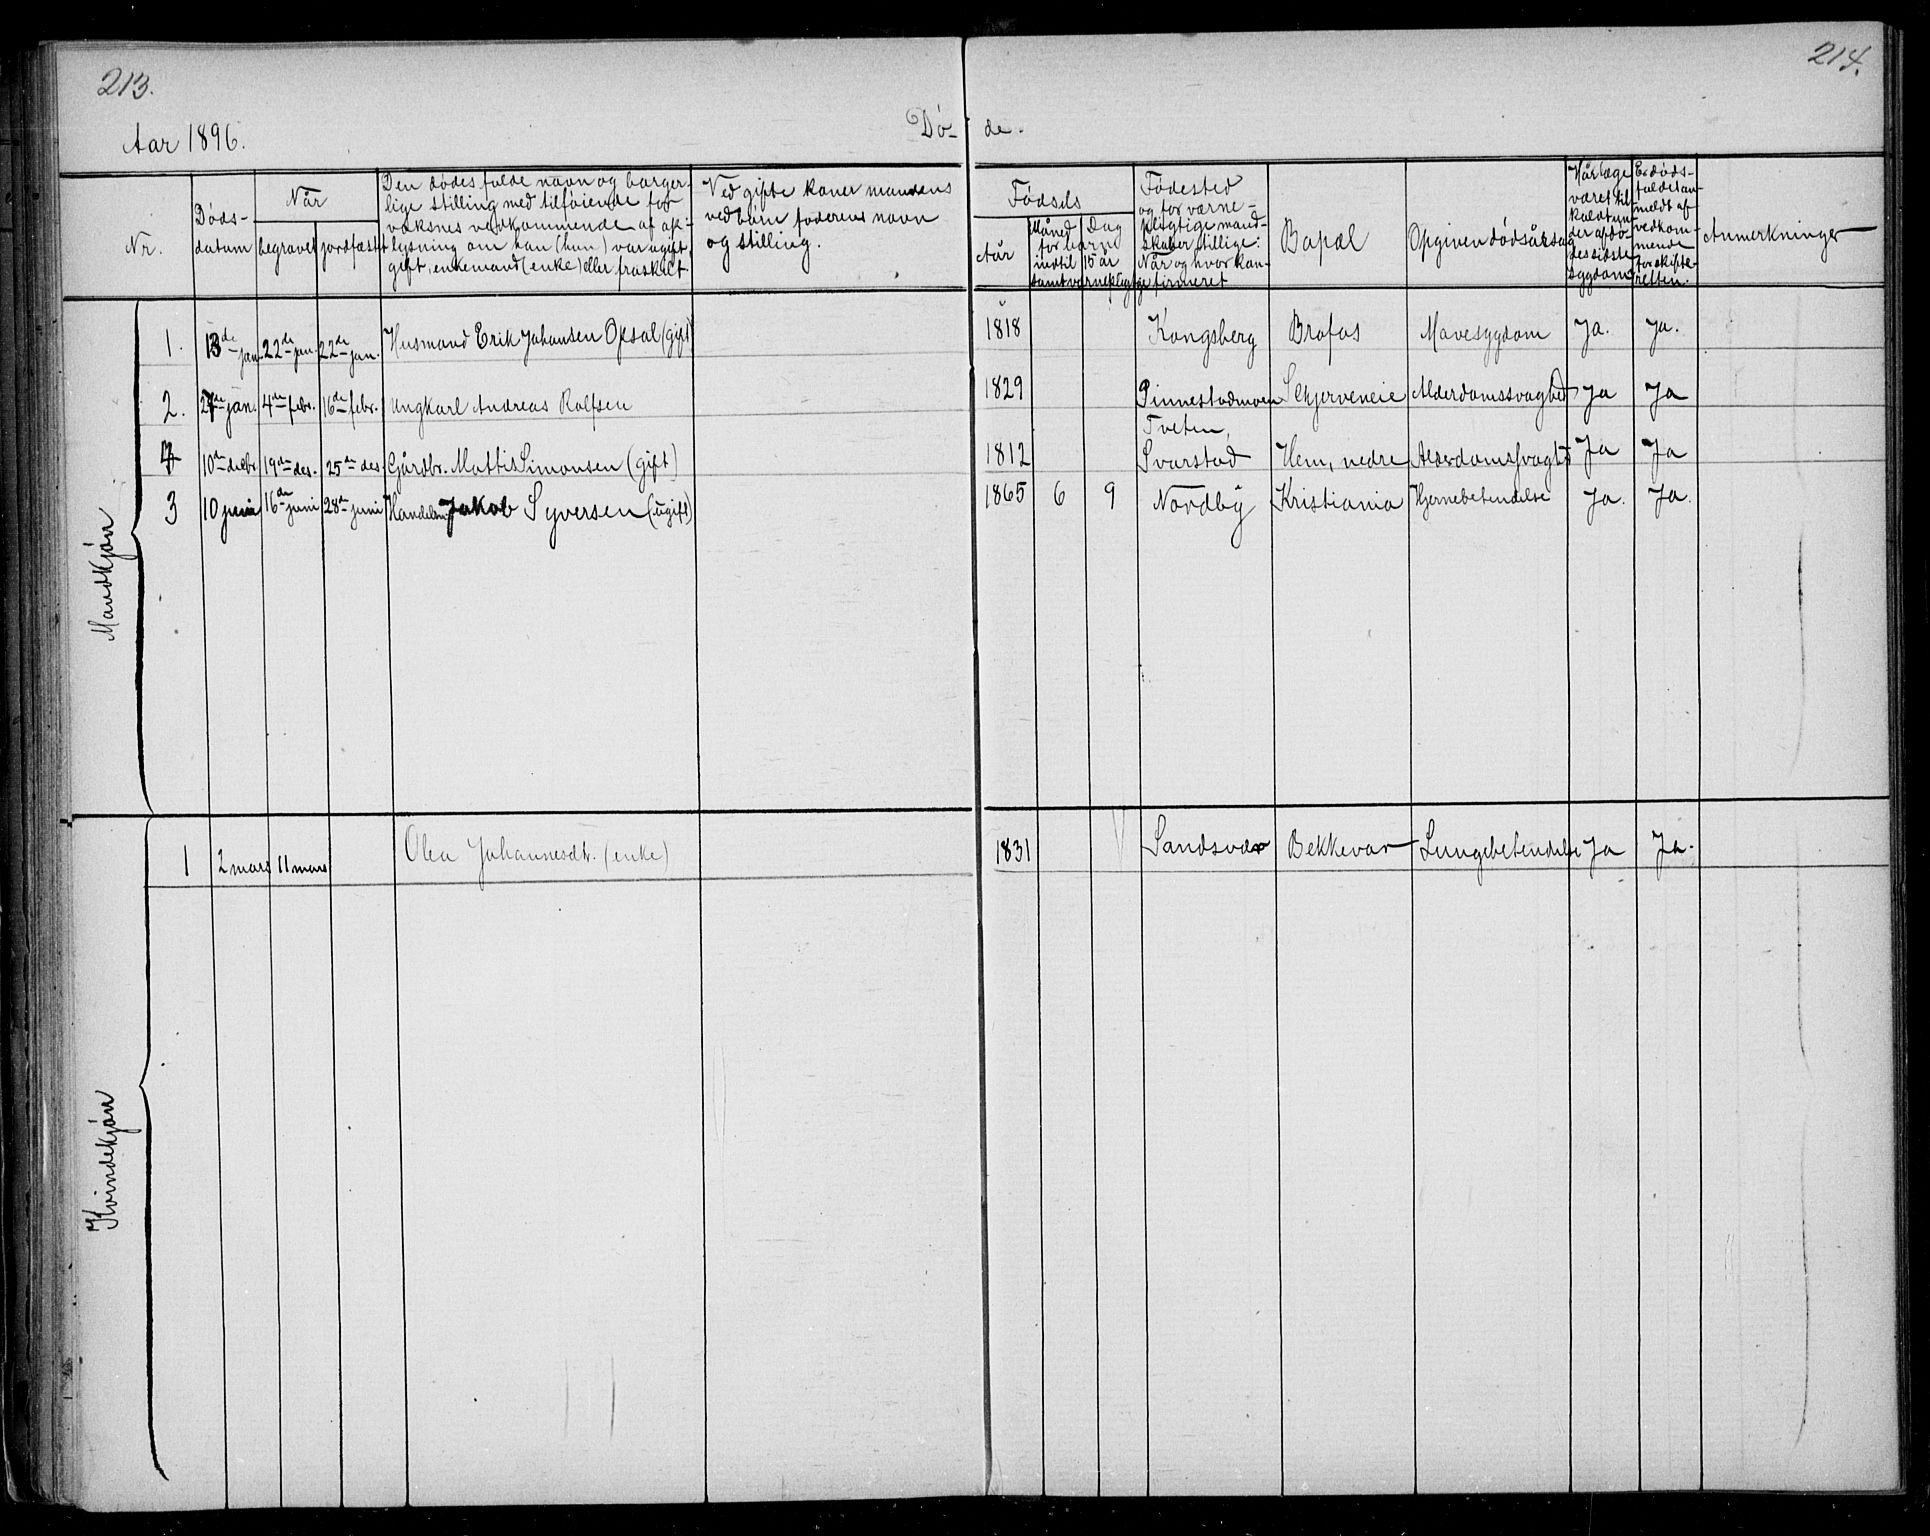 213.
214.
Aar 1896.
Dø- de.
Nr.
Døds-
datum
Når
begravet
jordfæstet
Den dødes fulde navn og borger-
lige stilling med tilføiende for
voksnes vedkommende af op-
lysning om han (hun) var ugift,
gift, enkemand (enke) eller fraskilt.
Ved gifte koner mandens
ved børn faderens navn
og stilling.
Fødsels
Aar
Måned Dag
for børn
indtil 15 år
samt vernepligtige
Fødested
og for værne-
pligtige mand-
skaber tillige:
Når og hvor kon-
firmeret
Bopæl
Opgiven dødsårsag
Har læge
været til-
kaldt un-
der afdø-
des sidste
sygdom
Er døds-
faldet an-
meldt af
vedkom-
mende
for skifte-
retten.
Anmerkninger
Mandkjøn
1. 13de jan. 22de jan. 22de jan. Husmand Erik Johansen Opsal (gift) 1818 Kongsberg Brofos Mavesygdom Ja. Ja.
2. 27de jan. 4de febr. 16de febr. Ungkarl Andreas Rolfsen 1829 Pinnestadmoen Skjerveneie Alderdomssvaghed Ja Ja
4 10de decbr. 19de des. 25de des. Gårdbr. Mattis Simonsen (gift) 1812 Tveten,
Svarstad Hem, nedre Alderdomssvaghd Ja Ja
3 10 juni 16de juni 28de juni Handelsm. Jakob Syversen (ugift) 1865 6 9 Nordby Kristiania Hjernebetendelse Ja. Ja.
Kvindekjøn
1 2 mars 11 mars Olea Johannesdt. (enke) 1831 Sandsvær Bekkevar Lungebetendelse Ja Ja.